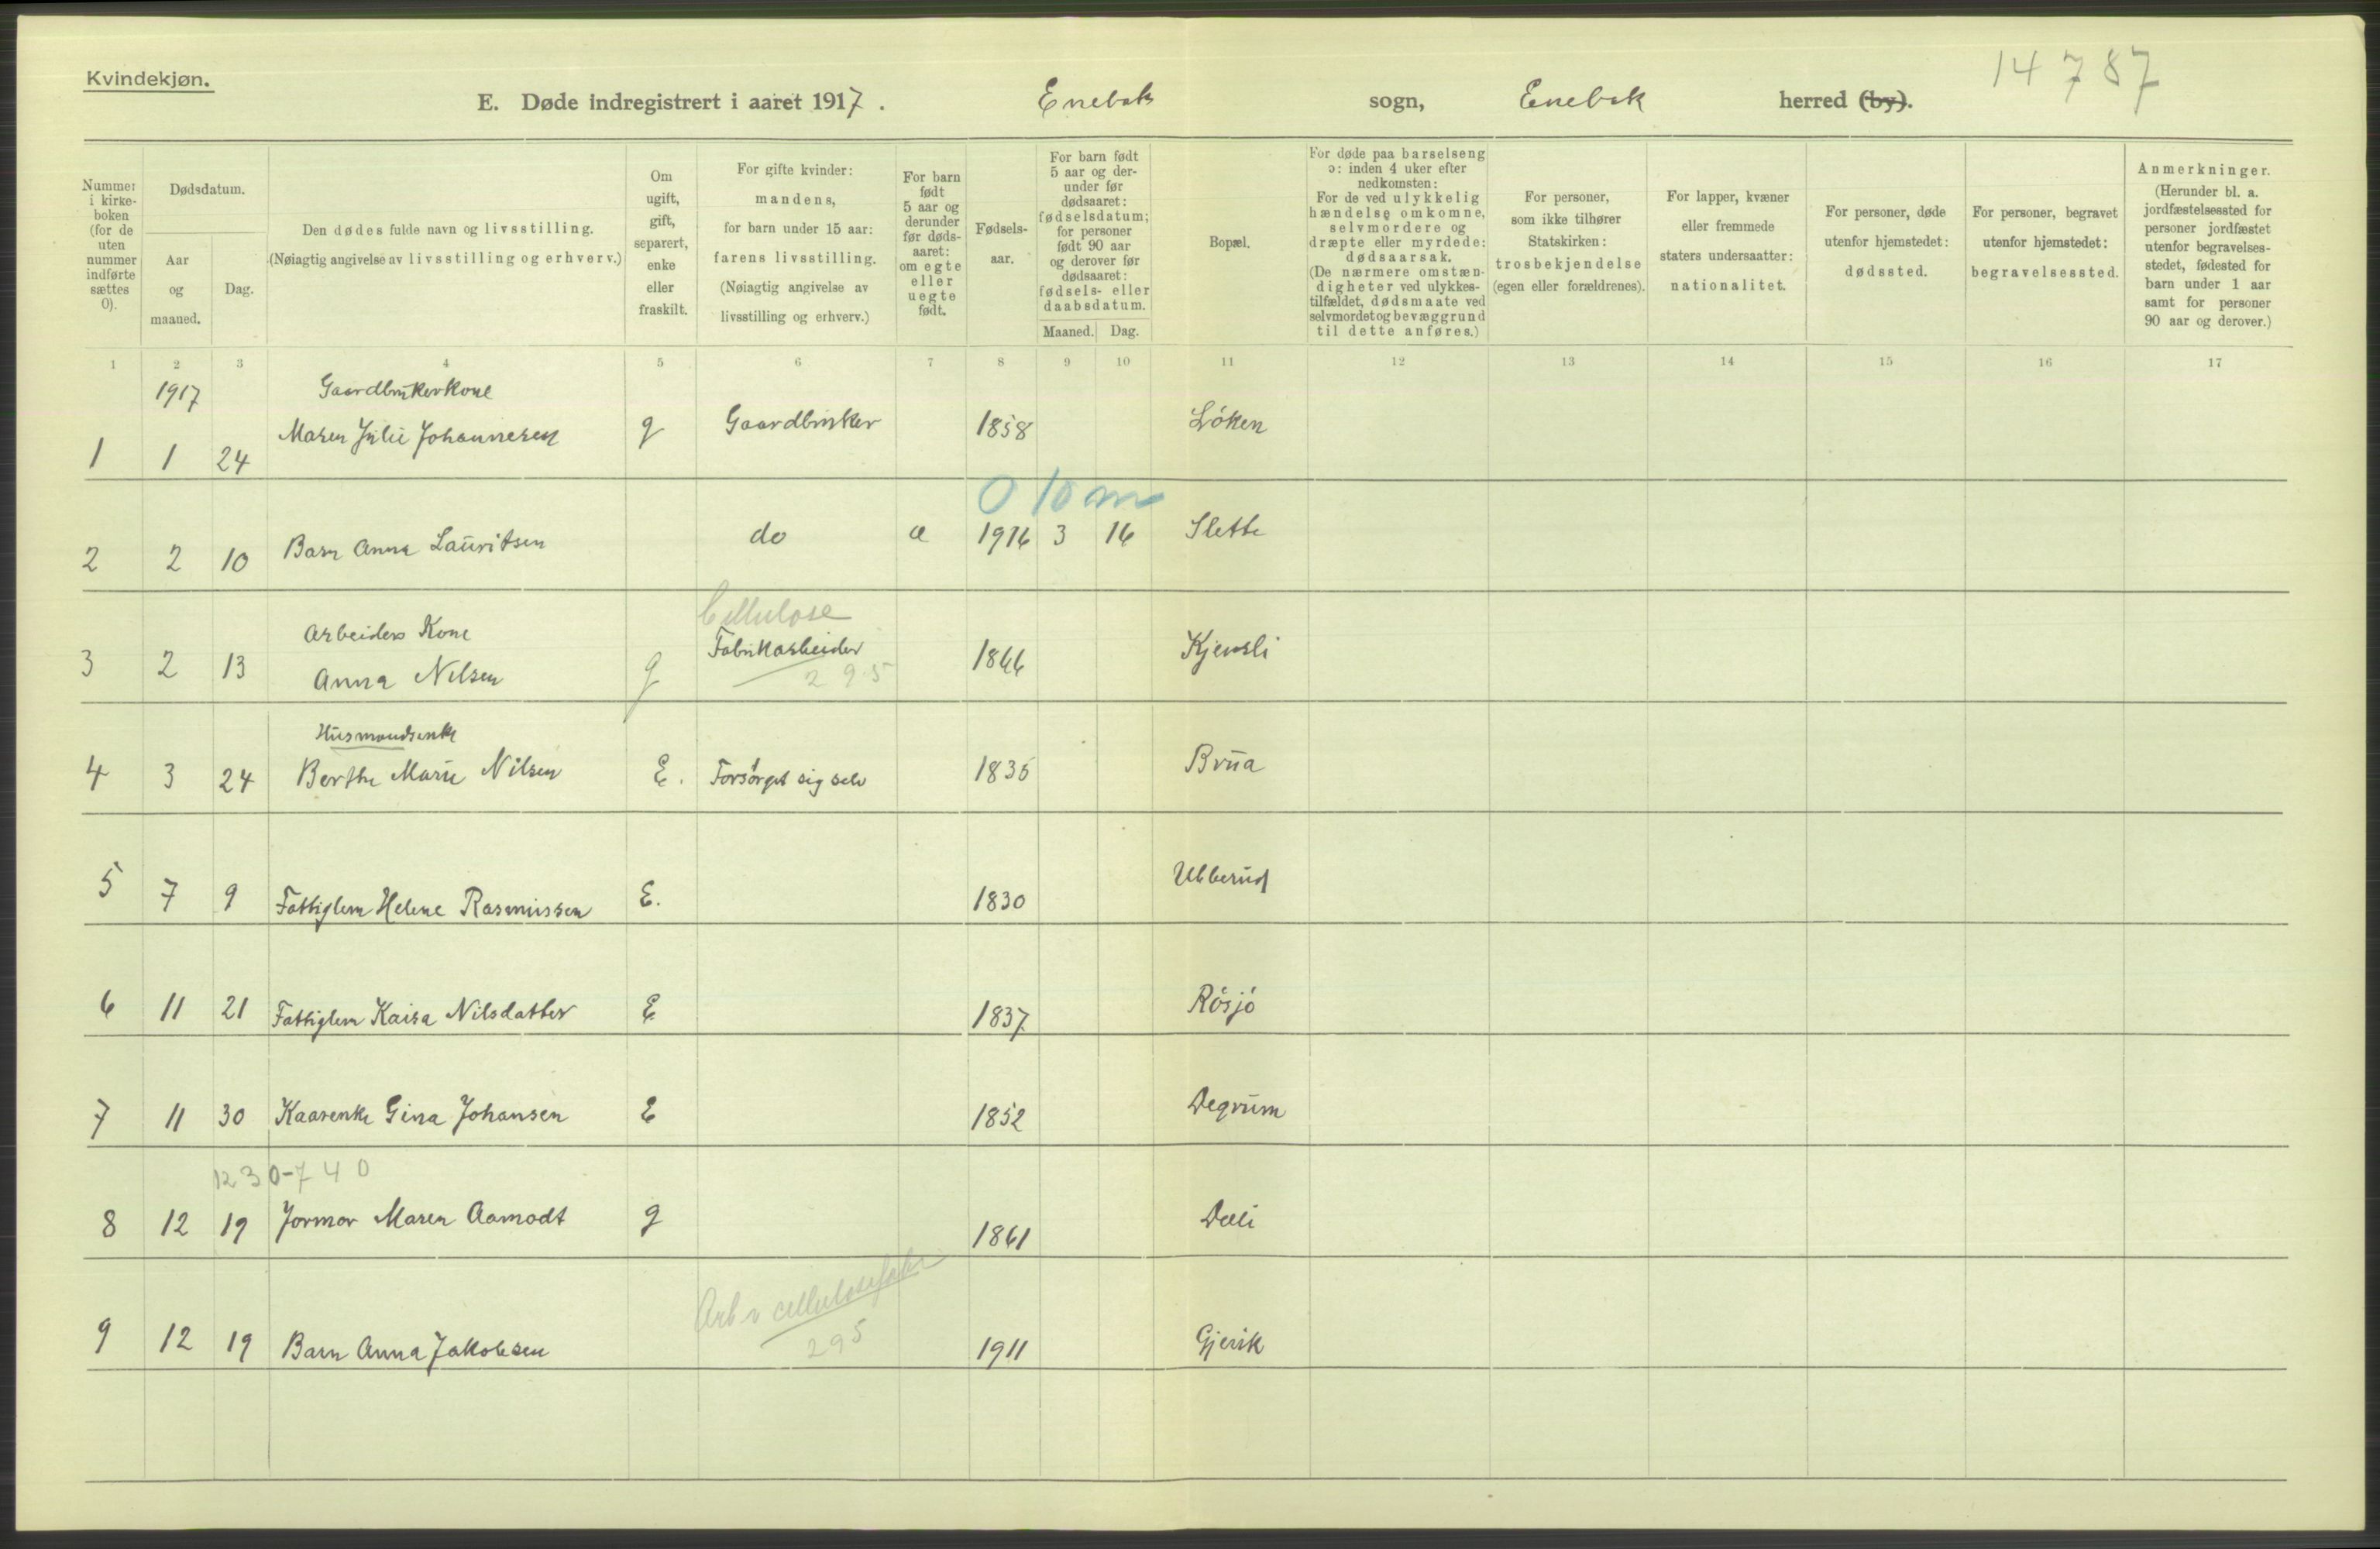 Kvindekjøn.
14 787
E. Døde indregistrert i aaret 1917. Enebak sogn, Enebak herred (by).
Nummer i kirke-boken (for de uten nummer indførte sættes 0).
Dødsdatum.
Aar og maaned.
Dag.
Den dødes fulde navn og livsstilling.
(Nøiagtig angivelse av livsstilling og erhverv.)
Om ugift, gift, separert, enke eller fraskilt.
For gifte kvinder: mandens, for barn under 15 aar: farens livsstilling. (Nøiagtig angivelse av livsstilling og erhverv.)
For barn født 5 aar og derunder før døds-aaret: om egte eller uegte født.
Fødsels-aar.
For barn født 5 aar og der-under før dødsaaret: fødselsdatum; for personer født 90 aar og derover før dødsaaret: fødsels- eller daabsdatum.
Maaned. Dag.
Bopæl.
For døde paa barselseng ɔ: inden 4 uker efter nedkomsten: For de ved ulykkelig hændelse omkomne, selvmordere og dræpte eller myrdede: dødsaarsak. (De nærmere omstæn-digheter ved ulykkes-tilfældet, dødsmaate ved selvmordet og bevæggrund til dette anføres.)
For personer, som ikke tilhører Statskirken: trosbekjendelse (egen eller forældrenes).
For lapper, kvæner eller fremmede staters undersaatter: nationalitet.
For personer, døde utenfor hjemstedet: dødssted.
For personer, begravet utenfor hjemstedet: begravelsessted.
Anmerkninger. (Herunder bl. a. jordfæstelsessted for personer jordfæstet utenfor begravelses-stedet, fødested for barn under 1 aar samt for personer 90 aar og derover.)
1 2 3 4 5 6 7 8 9 10 11 12 13 14 15 16 17
1917 Gaardbrukerkone
1 1 24 Maren Julie Johannesen g Gaardbruker 1858 Löken
0 10 m
2 2 10 Barn Anna Lauritsen do æ 1916 3 16 Slette
Cellulose
Arbeiders Kone Fabrikarbeider
3 2 13 Anna Nilsen g 295 1866 Kjensli
Husmandsenke
4 3 24 Berthe Marie Nilsen E. Forsörget sig selv 1835 Brua
5 7 9 Fattiglem Helene Rasmussen E. 1830 Ubberud
6 11 21 Fattiglem Kaisa Nilsdatter E 1837 Rösjö
7 11 30 Kaarenke Gina Johansen E 1852 Degrum
1230-740
8 12 19 Jormor Maren Aamodt g 1861 Dæli
Arb v cellulosefabr
9 12 19 Barn Anna Jakobsen 295 1911 Gjerik